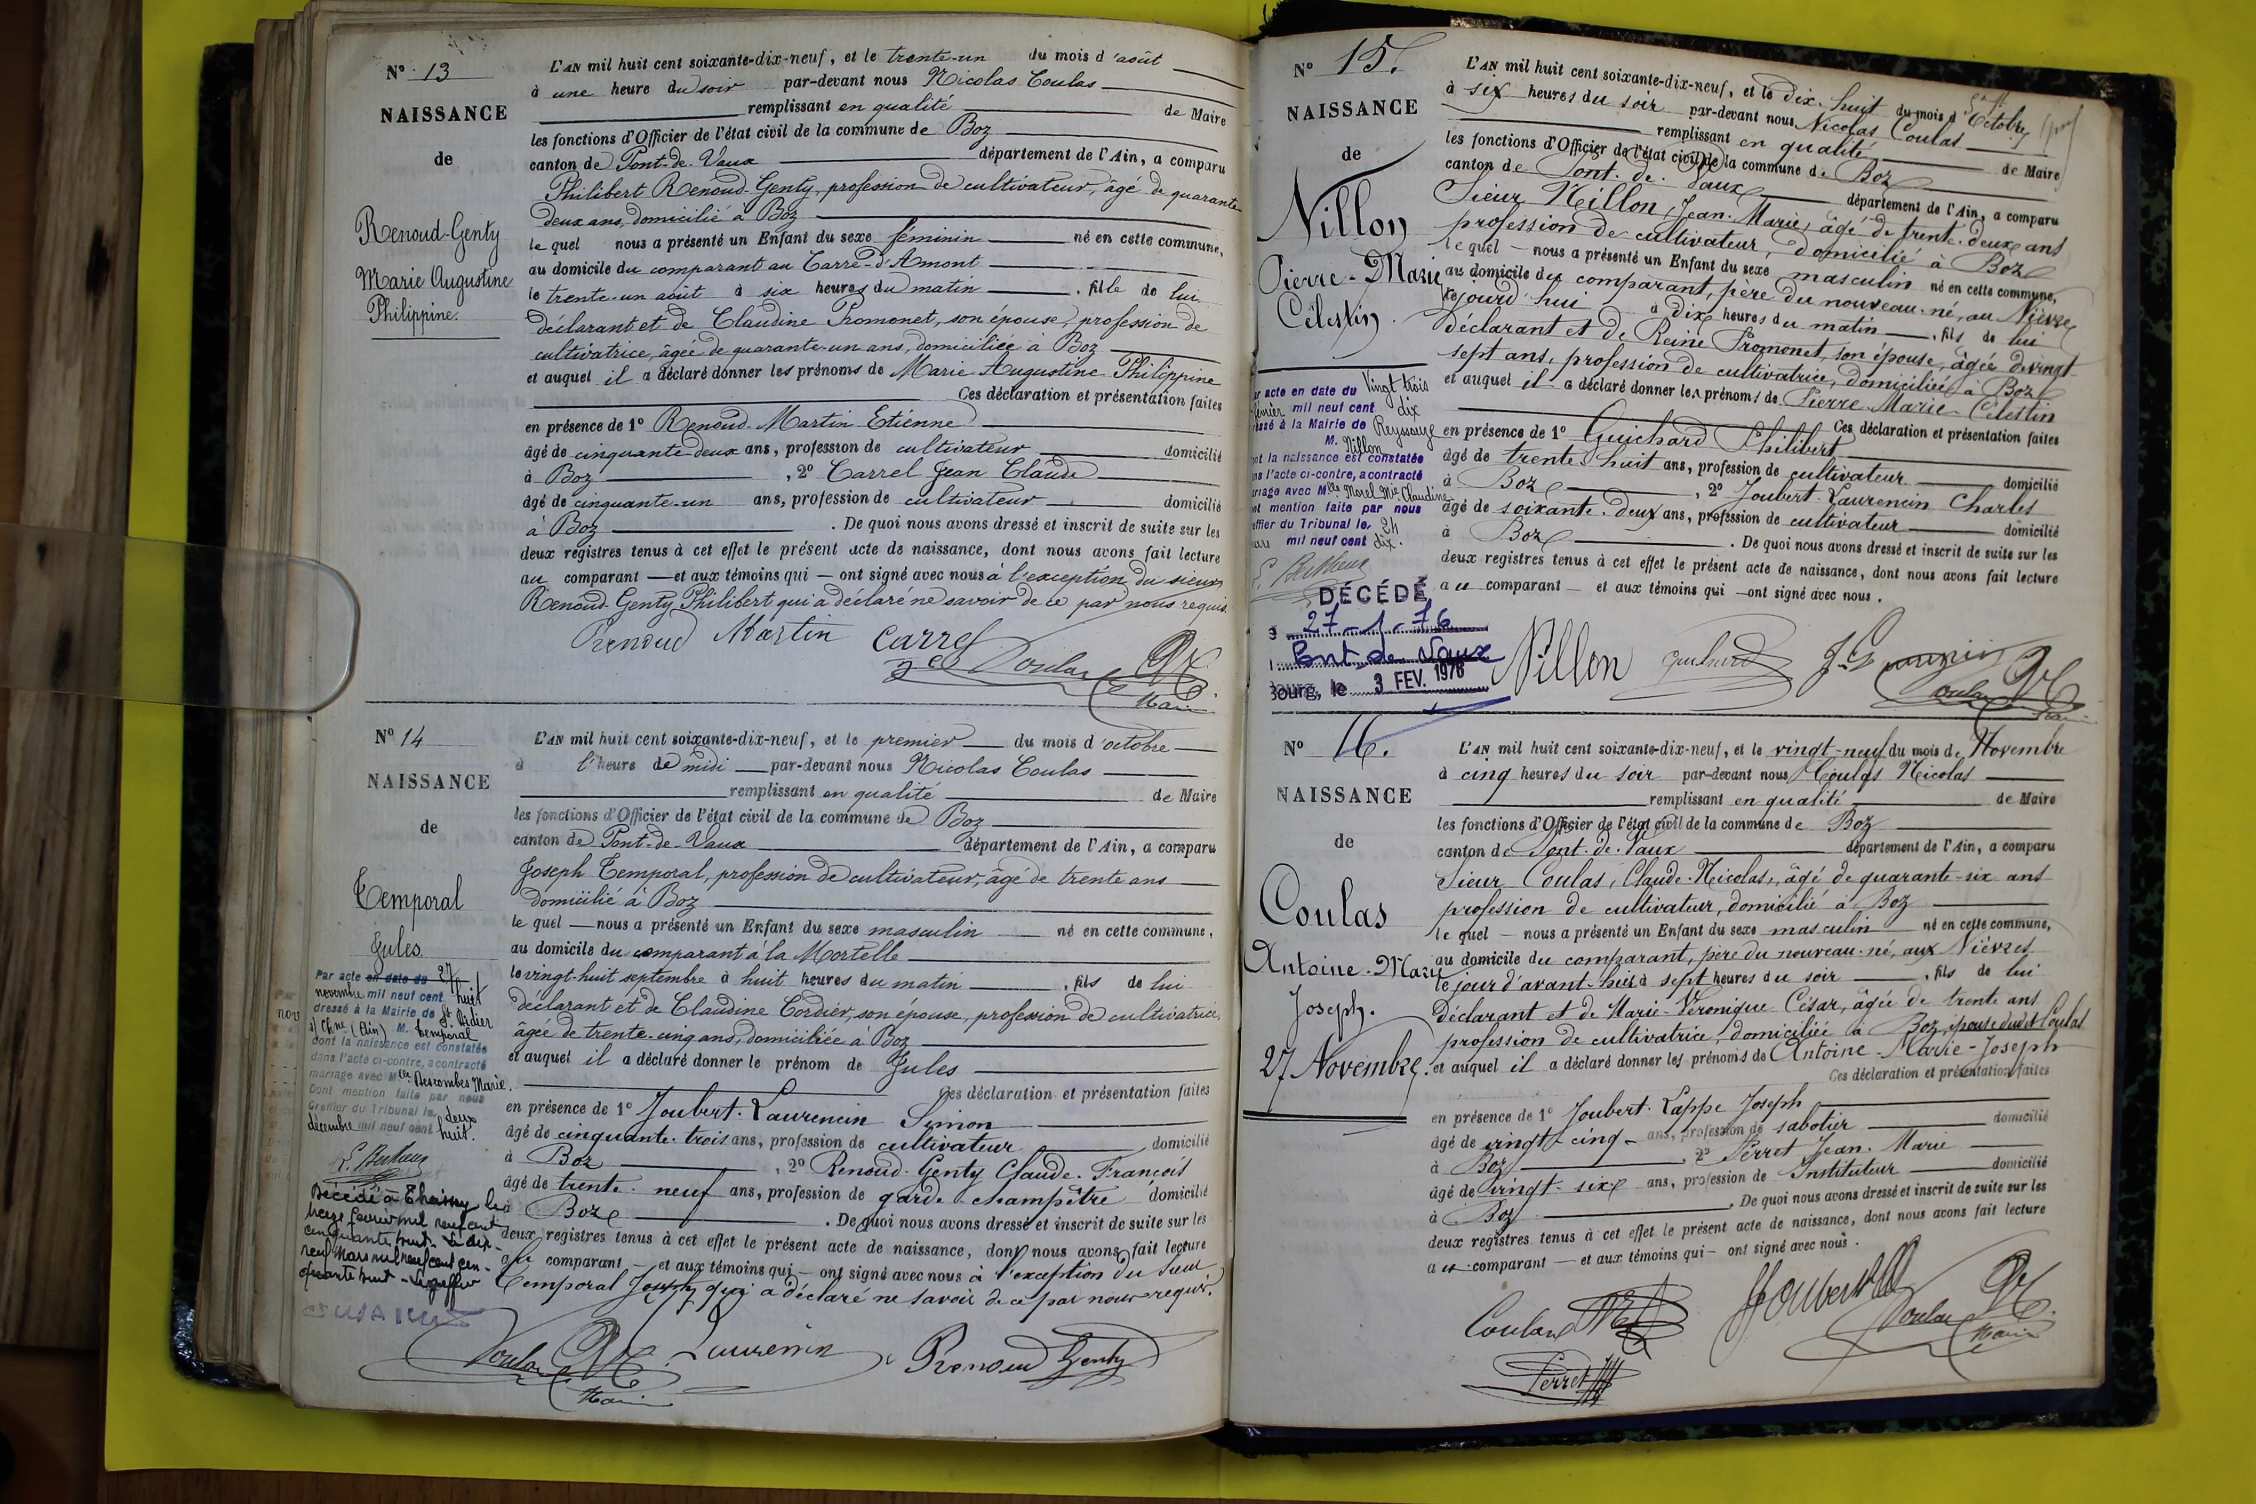 N° 13
NAISSANCE
de
Renoud-Genty
Marie Augustine
Philippine.
L'AN mil huit cent soixante-dix-neuf, et le trente-un du mois d'août
à une heure du soir par-devant nous Nicolas Coulas
remplissant en qualité de Maire
les fonctions d'Officier de l'état civil de la commune de Boz
canton de Pont-de-Vaux département de l'Ain, a comparu
Philibert Renoud-Genty, profession de cultivateur, âgé de quarante
deux ans, domicilié à Boz
le quel nous a présenté un Enfant du sexe féminin né en cette commune,
au domicile du comparant au Carré-d'Amont
le trente-un août à six heures du matin , fille de lui
déclarant et de Claudine Promonet, son épouse, profession de
cultivatrice, âgée de quarante-un ans, domiciliée à Boz
et auquel il a déclaré donner les prénoms de Marie Augustine Philippine
Ces déclaration et présentation faites
en présence de 1° Renoud Martin Etienne
âgé de cinquante deux ans, profession de cultivateur domicilié
à Boz , 2° Carrel Jean Claude
âgé de cinquante-un ans, profession de cultivateur domicilié
à Boz . De quoi nous avons dressé et inscrit de suite sur les
deux registres tenus à cet effet le présent acte de naissance, dont nous avons fait lecture
au comparant — et aux témoins qui — ont signé avec nous à l'exception du sieur
Renoud-Genty Philibert qui a déclaré ne savoir de ce par nous requis.
Renoud Martin Carrel
J C Coulas
Maire
N° 14
NAISSANCE
de
Temporal
Jules
Par acte en date du 27
novembre mil neuf cent huit
dressé à la Mairie de St Didier
s/ Chne (Ain) M. Temporal
dont la naissance est constatée
dans l'acte ci-contre, a contracté
mariage avec Mlle Descombes Marie.
Dont mention faite par nous
Greffier du Tribunal le deux
décembre mil neuf cent huit.
Décédé à Thoissey le
treize février mil neuf cent
cinquante huit - Le dix-
neuf Mars mil neuf cent cin-
quante huit - Le greffier
L'AN mil huit cent soixante-dix-neuf, et le premier du mois d'octobre
à l'heure de midi par-devant nous Nicolas Coulas
remplissant en qualité de Maire
les fonctions d'Officier de l'état civil de la commune de Boz
canton de Pont-de-Vaux département de l'Ain, a comparu
Joseph Temporal, profession de cultivateur, âgé de trente ans
domicilié à Boz
le quel — nous a présenté un Enfant du sexe masculin né en cette commune,
au domicile du comparant à la Mortelle
le vingt-huit septembre à huit heures du matin , fils de lui
declarant et de Claudine Cordier, son épouse, profession de cultivatrice,
âgée de trente-cinq ans, domiciliée à Boz
et auquel il a déclaré donner le prénom de Jules
Ces déclaration et présentation faites
en présence de 1° Joubert-Laurencin Simon
âgé de cinquante-trois ans, profession de cultivateur domicilié
à Boz , 2° Renoud-Genty Claude-François
âgé de trente-neuf ans, profession de garde champêtre domicilié
à Boz . De quoi nous avons dressé et inscrit de suite sur les
deux registres tenus à cet effet le présent acte de naissance, dont nous avons fait lecture
au comparant — et aux témoins qui — ont signé avec nous à l'exception du sieur
Temporal Joseph qui a déclaré ne savoir de ce par nous requis.
Coulas Laurencin Renoud Genty
Maire
N° 15.
NAISSANCE
de
Nillon
Pierre-Marie
Célestin.
ar acte en date du vingt trois
février mil neuf cent dix
ressé à la Mairie de Reyssouze
M. Nillon
ont la naissance est constatée
ans l'acte ci-contre, a contracté
ariage avec Mlle Morel Mie Claudine
ont mention faite par nous
reffier du Tribunal le 24
mil neuf cent dix.
DÉCÉDÉ
27-1-76
Pont de Vaux
Bourg, le 3 FEV. 1976
L'AN mil huit cent soixante-dix-neuf, et le dix-huit du mois d'Octobre
à six heures du soir par-devant nous Nicolas Coulas
remplissant en qualité de Maire
les fonctions d'Officier de l'état civil de la commune de Boz
canton de Pont-de-Vaux département de l'Ain, a comparu
Sieur Nillon, Jean-Marie, âgé de trente-deux ans
profession de cultivateur, domicilié à Boz
le quel — nous a présenté un Enfant du sexe masculin né en cette commune,
au domicile du comparant, père du nouveau-né, au Nièvre
cejourd'hui à dix heures du matin , fils de lui
déclarant et de Reine Promonet, son épouse, âgée de vingt
sept ans, profession de cultivatrice, domiciliée à Boz
et auquel il a déclaré donner les prénoms de Pierre-Marie-Célestin
Ces déclaration et présentation faites
en présence de 1° Guichard Philibert
âgé de trente-huit ans, profession de cultivateur domicilié
à Boz , 2° Joubert-Laurencin Charles
âgé de soixante-deux ans, profession de cultivateur domicilié
à Boz . De quoi nous avons dressé et inscrit de suite sur les
deux registres tenus à cet effet le présent acte de naissance, dont nous avons fait lecture
au comparant — et aux témoins qui — ont signé avec nous.
Nillon Guichard
Coulas
Maire
N° 16.
NAISSANCE
de
Coulas
Antoine-Marie
Joseph.
27 Novembre.
L'AN mil huit cent soixante-dix-neuf, et le vingt-neuf du mois de Novembre
à cinq heures du soir par-devant nous Coulas Nicolas
remplissant en qualité de Maire
les fonctions d'Officier de l'état civil de la commune de Boz
canton de Pont-de-Vaux département de l'Ain, a comparu
Sieur Coulas, Claude-Nicolas, âgé de quarante-six ans
profession de cultivateur, domicilié à Boz
le quel — nous a présenté un Enfant du sexe masculin né en cette commune,
au domicile du comparant, père du nouveau-né, aux Nièvres
le jour d'avant-hier à sept heures du soir , fils de lui
Déclarant et de Marie-Véronique César, âgée de trente ans
profession de cultivatrice, domiciliée à Boz, épouse dudit Coulas
et auquel il a déclaré donner les prénoms de Antoine-Marie-Joseph
Ces déclaration et présentation faites
en présence de 1° Joubert-Lappe Joseph
âgé de vingt-cinq ans, profession de sabotier domicilié
à Boz , 2° Perret Jean-Marie
âgé de vingt-six ans, profession de Instituteur domicilié
à Boz . De quoi nous avons dressé et inscrit de suite sur les
deux registres tenus à cet effet le présent acte de naissance, dont nous avons fait lecture
au comparant — et aux témoins qui — ont signé avec nous.
Coulas Joubert Coulas
Maire
Perret